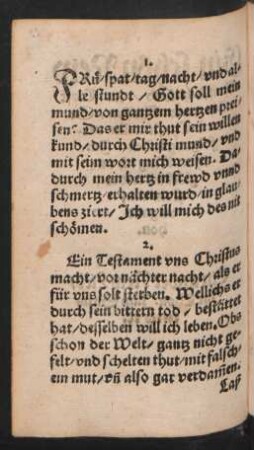 1.
FRü/spat/tag/nacht/vnd al-
le stundt/Gott soll mein
mund/von gantzem hertzen prei
sen? Das er mir thut sein willen
kund/durch Christi mund/vnd
mit seim wort mich weisen. Da-
durch mein hertz in frewd vnnd
schmertz/erhalten wurd/in glau
bens ziert/Ich will mich des nit
schömen.
2.
Ein Testament vns Christus
macht/vor nächter nacht/als er
für vns solt sterben. Wellichs er
durch sein bittern tod/bestättet
hat/desselben will ich leben. Obs
schon der Welt/gantz nicht ge-
felt/vnd schelten thut/mit falsch-
em mut/vñ also gar verdam̃en.
Laß